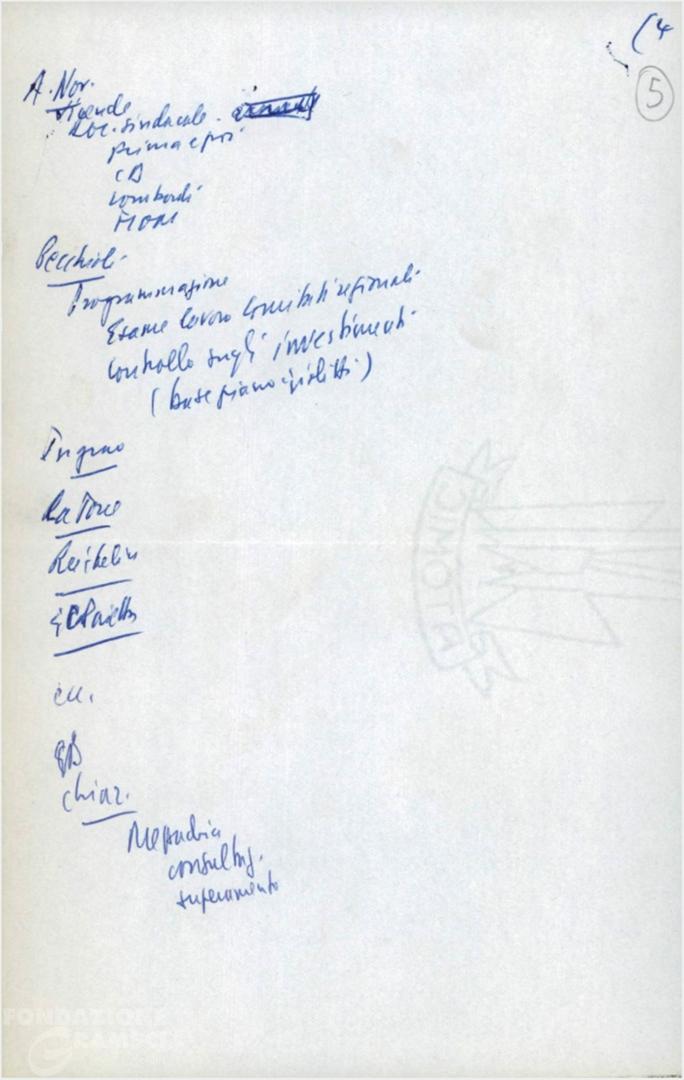 (4
5
A. Nov.
Aziende
doc. sindacale.
prima e poi
CD
Lombardi
FIOM
Pecchioli
Programmazione
Esame lavoro Comitati regionali
Controllo sugli investimenti
(base piano Giolitti)
Ingrao
La Torre
Reichlin
GC Pajetta
cu.
Chiar.
consultaz.
superamento
FONDAZIONE
GRAMSCI